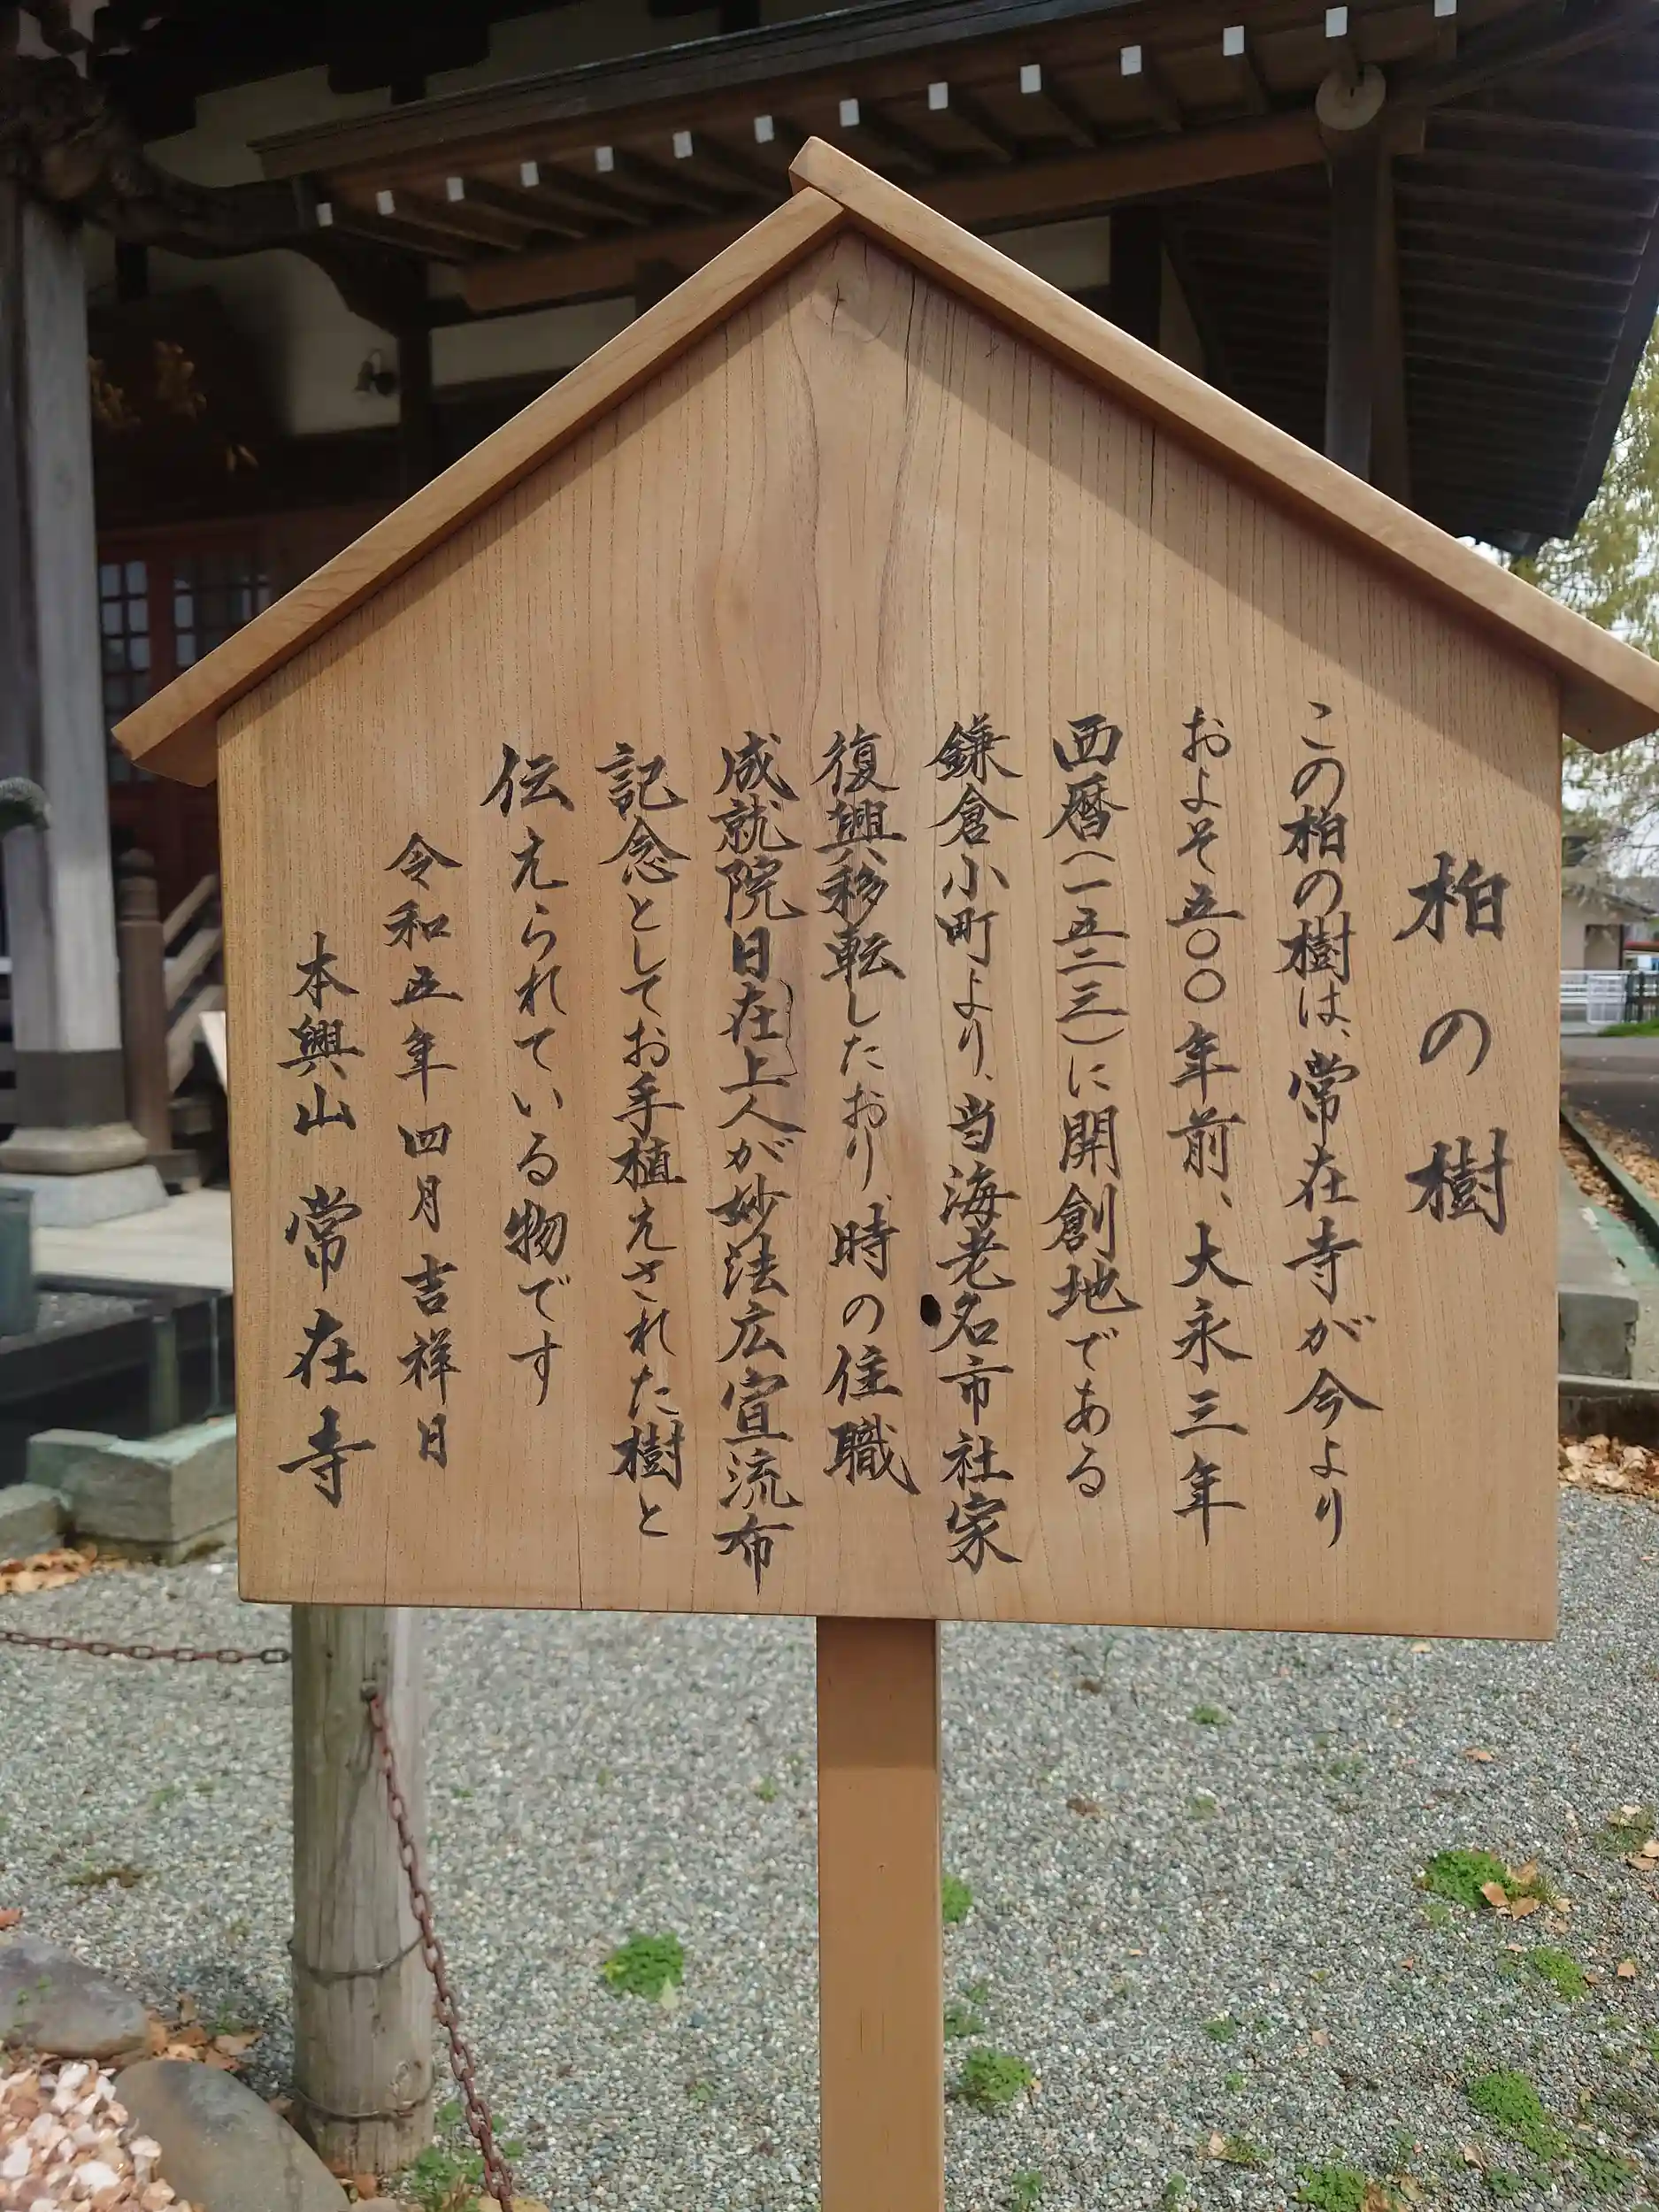 柏の樹
この柏の樹は、常在寺が今より
およそ五〇〇年前、大永三年
西暦(一五二三)に開創地である
鎌倉小町より、当海老名市社家
復興移転しており、時の住職
成就院日在上人が妙法広宣流布
記念としてお手植えされた樹と
伝えられている物です
令和五年四月吉祥日
本興山 常在寺